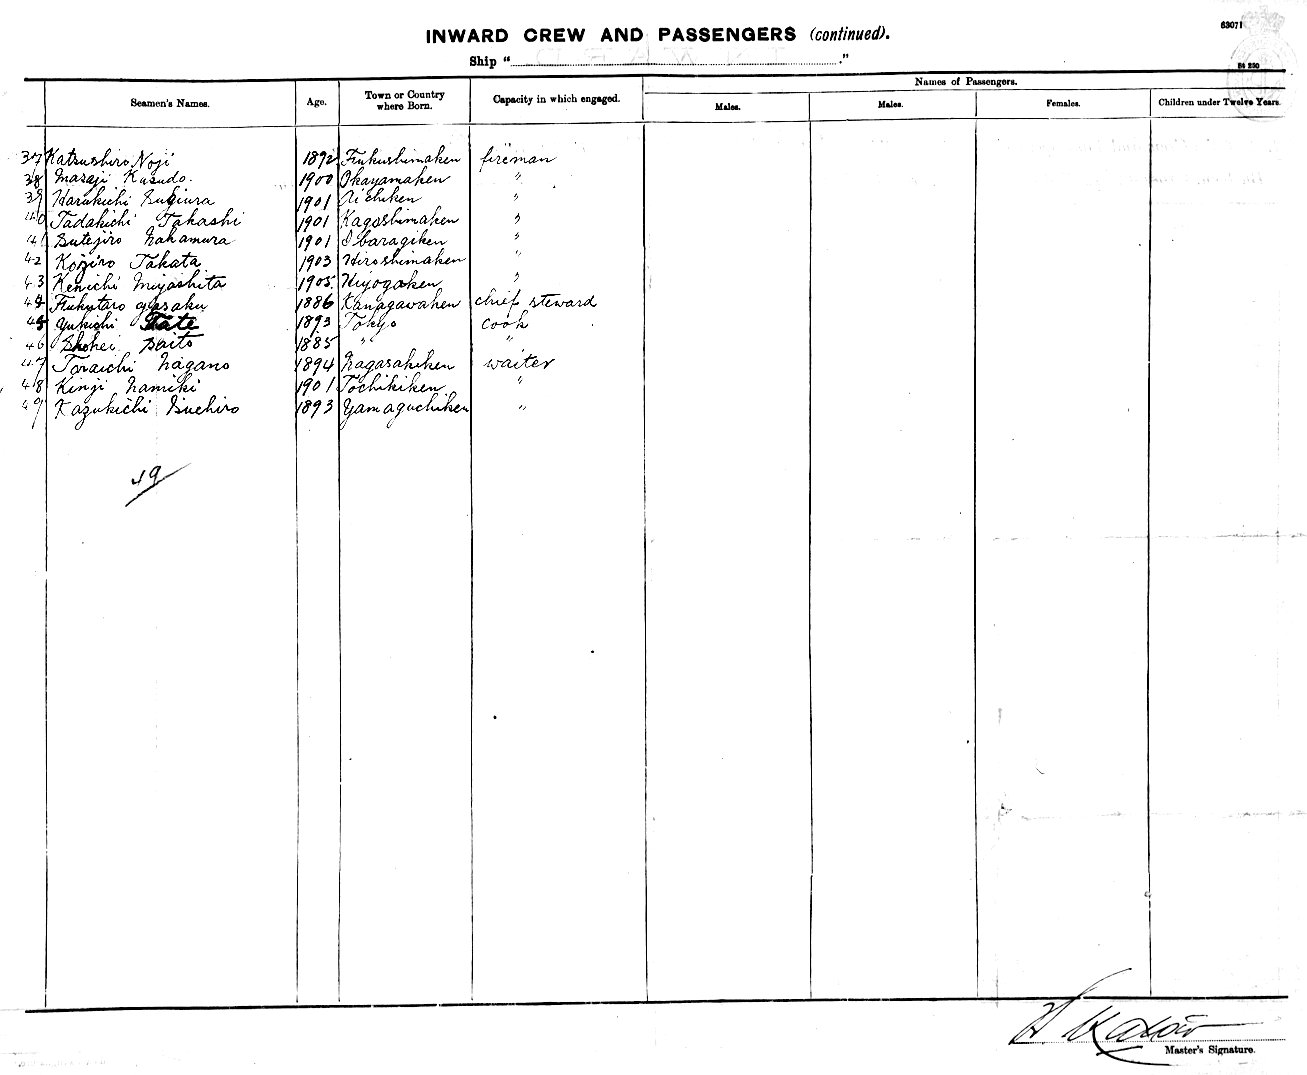 63071
INWARD CREW AND PASSENGERS (continued).
Ship “ .”
84 230
Seamen's Names. Age. Town or Country where Born. Capacity in which engaged. Names of Passengers.
Males. Males. Females. Children under Twelve Years.
37 Katsushiro Noji 1892 Fukushimaken fireman
38 Masaji Kusudo. 1900 Okayamaken "
39 Harukichi Sugiura 1901 Aichiken "
40 Tadakichi Takashi 1901 Kagoshimaken "
41 Sutejiro Nakamura 1901 Ibaragiken "
42 Kojiro Takata 1903 Hiroshimaken "
43 Kenichi Miyashita 1905. Hiyogoken "
44 Fukutaro 1886 Kanagawaken chief steward
45 Yukichi Tate 1893 Tokyo cook
46 Shohei Saito 1885 " "
47 Toraichi Nagano 1894 Nagasakiken waiter
48 Kinji Namiki 1901 Tochikiken "
49 Kazukichi Suehiro 1893 Yamaguchiken "
49
Master's Signature.